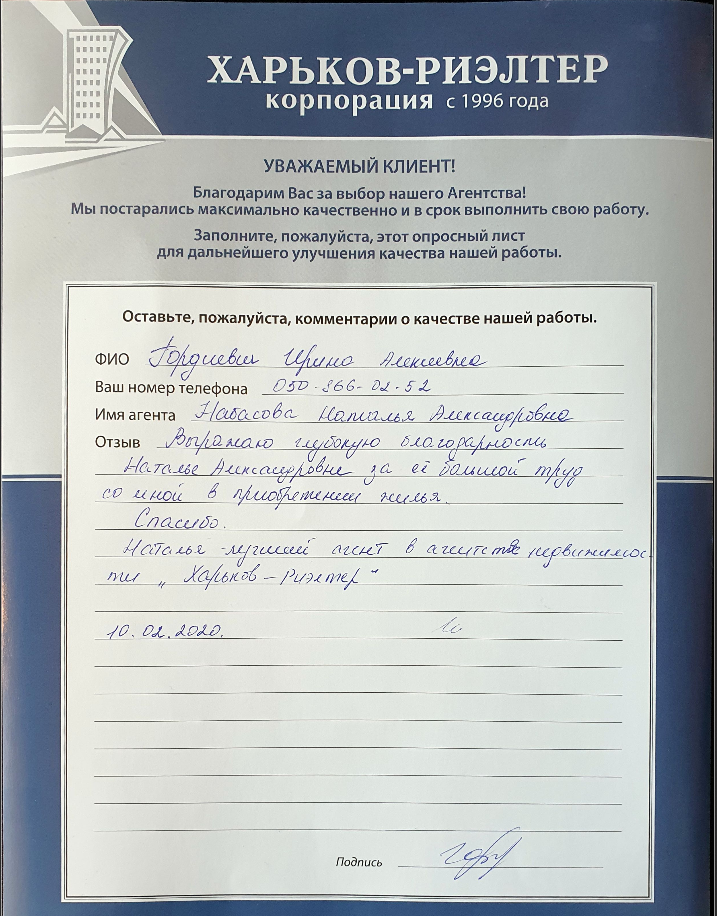 ХАРЬКОВ-РИЭЛТЕР
корпорация с 1996 года
УВАЖАЕМЫЙ КЛИЕНТ!
Благодарим Вас за выбор нашего Агентства!
Мы постарались максимально качественно и в срок выполнить свою работу.
Заполните, пожалуйста, этот опросный лист
для дальнейшего улучшения качества нашей работы.
Оставьте, пожалуйста, комментарии о качестве нашей работы.
ФИО Гордиевич Ирина Алексеевна
Ваш номер телефона 050-866-02-52
Имя агента Набасова Наталья Александровна
Отзыв Выражаю глубокую благодарность
Наталье Александровне за её большой труд
со мной в приобретении жилья.
Спасибо.
Наталья - лучший агент в агентстве недвижимос-
ти „Харьков-Риэлтер"
10.02.2020.
Подпись